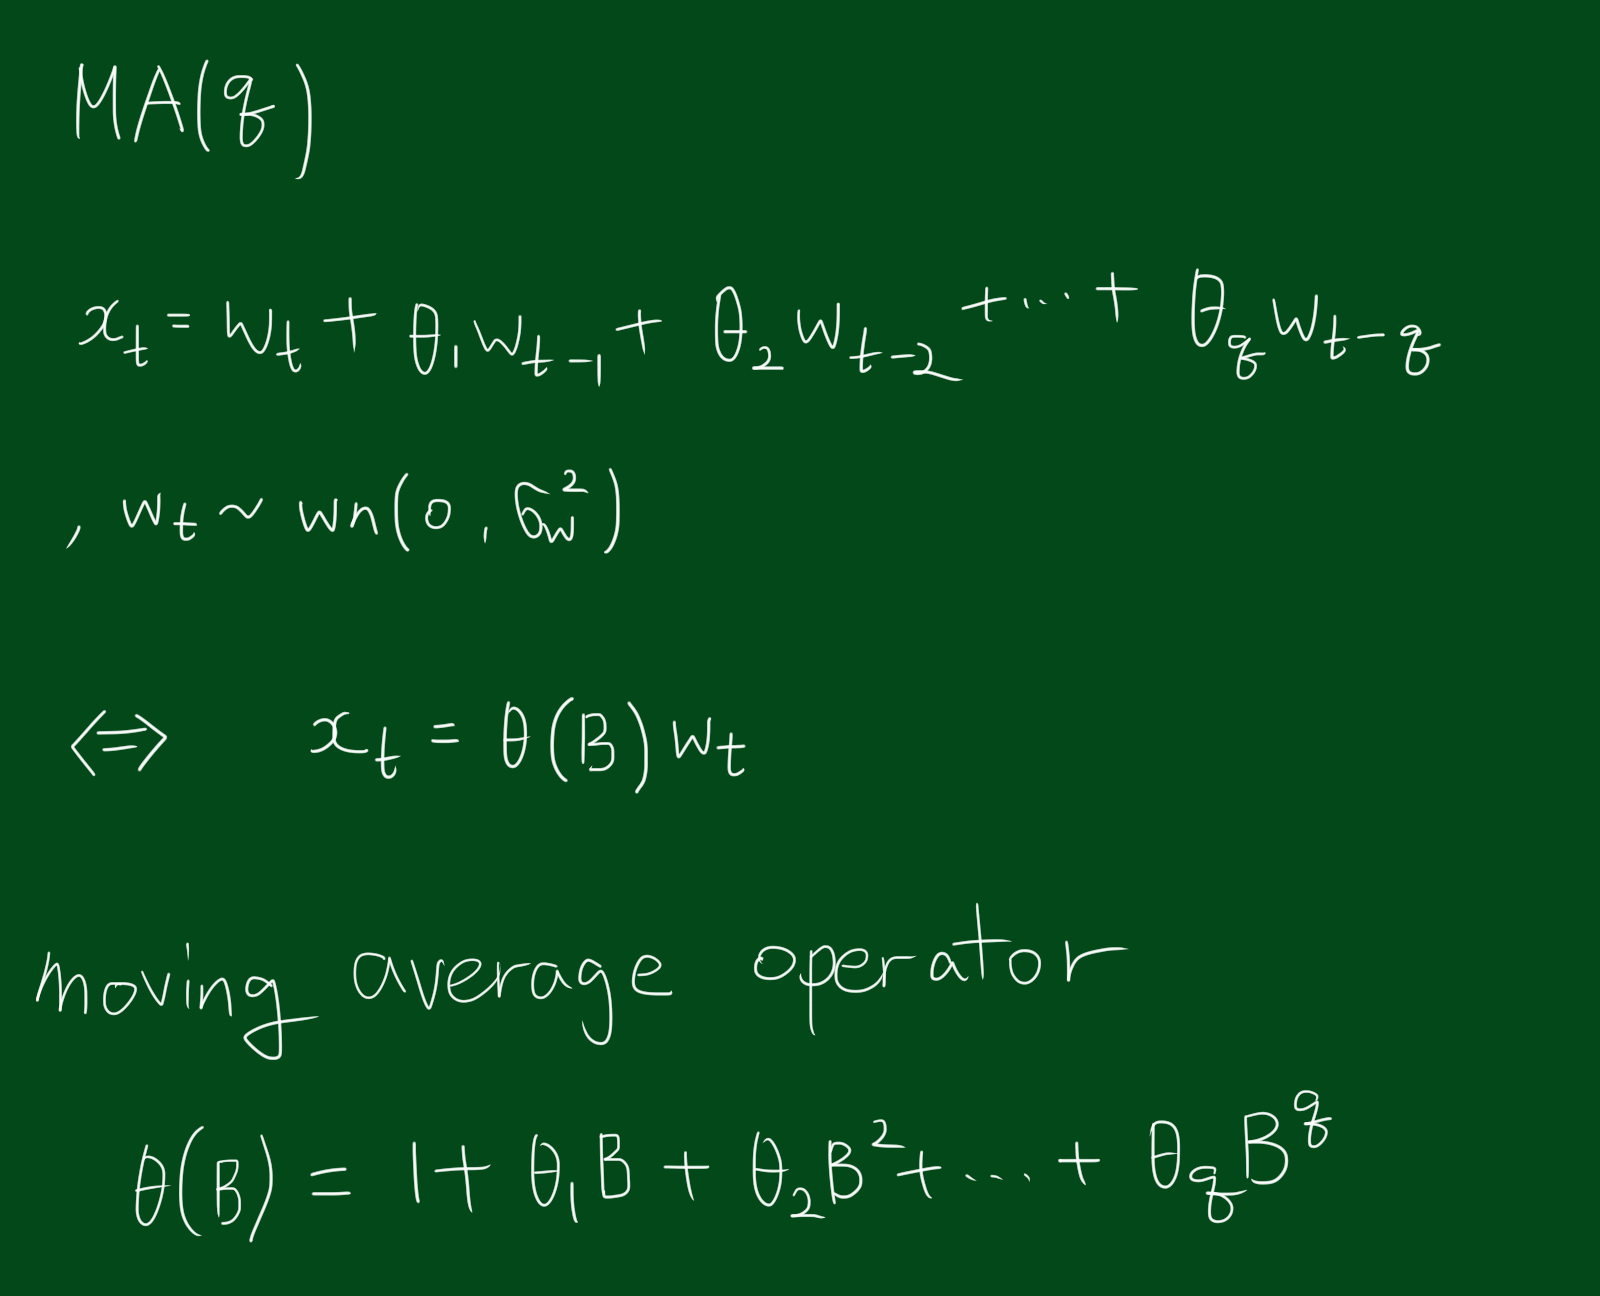 MA(q)
xₜ = wₜ + θ₁wₜ₋₁ + θ₂wₜ₋₂ + ⋯ + θ_q w_{t-q}
, wₜ ~ wn(0, σ_w²)
⇔ xₜ = θ(B)wₜ
moving average operator
θ(B) = 1 + θ₁B + θ₂B² + ⋯ + θ_q B^q